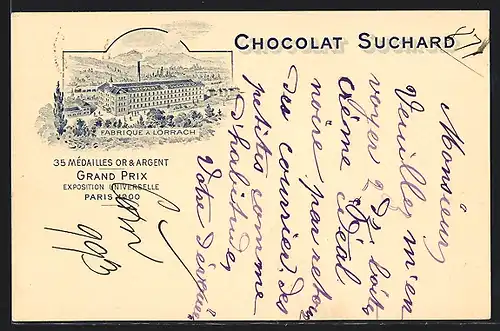 CHOCOLAT SUCHARD
FABRIQUE À LÖRRACH
35 MÉDAILLES OR & ARGENT
GRAND PRIX
EXPOSITION UNIVERSELLE
PARIS 1900
Monsieur
Veuillez m'en
voyer 2 Dz boîtes
crème idéal
noire par retour
du courrier, des
petites comme
d'habitude
Votre dévouée